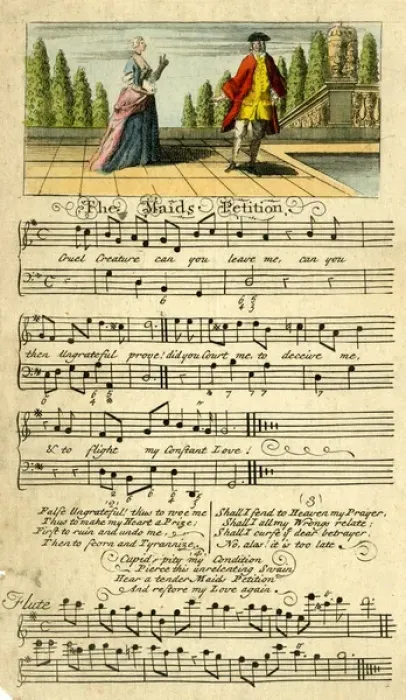 The Maids Petition.
Cruel Creature can you leave me, can you
6
6
4
5
3
then Ungrateful prove! did you Court me, to deceive me,
6
6
4
5
4
7
7
& to slight my Constant Love!
6
6
6
False Ungrateful! thus to woe me
Thus to make my Heart a Prize;
First to ruin and undo me,
Then to scorn and Tyrannize.
(3)
Shall I send to Heaven my Prayer,
Shall I all my Wrongs relate;
Shall I curse ye dear betrayer,
No, alas! it is too late.
(4)
Cupid pity my Condition
Pierce this unrelenting Swain
Hear a tender Maids Petition
And restore my Love again.
Flute